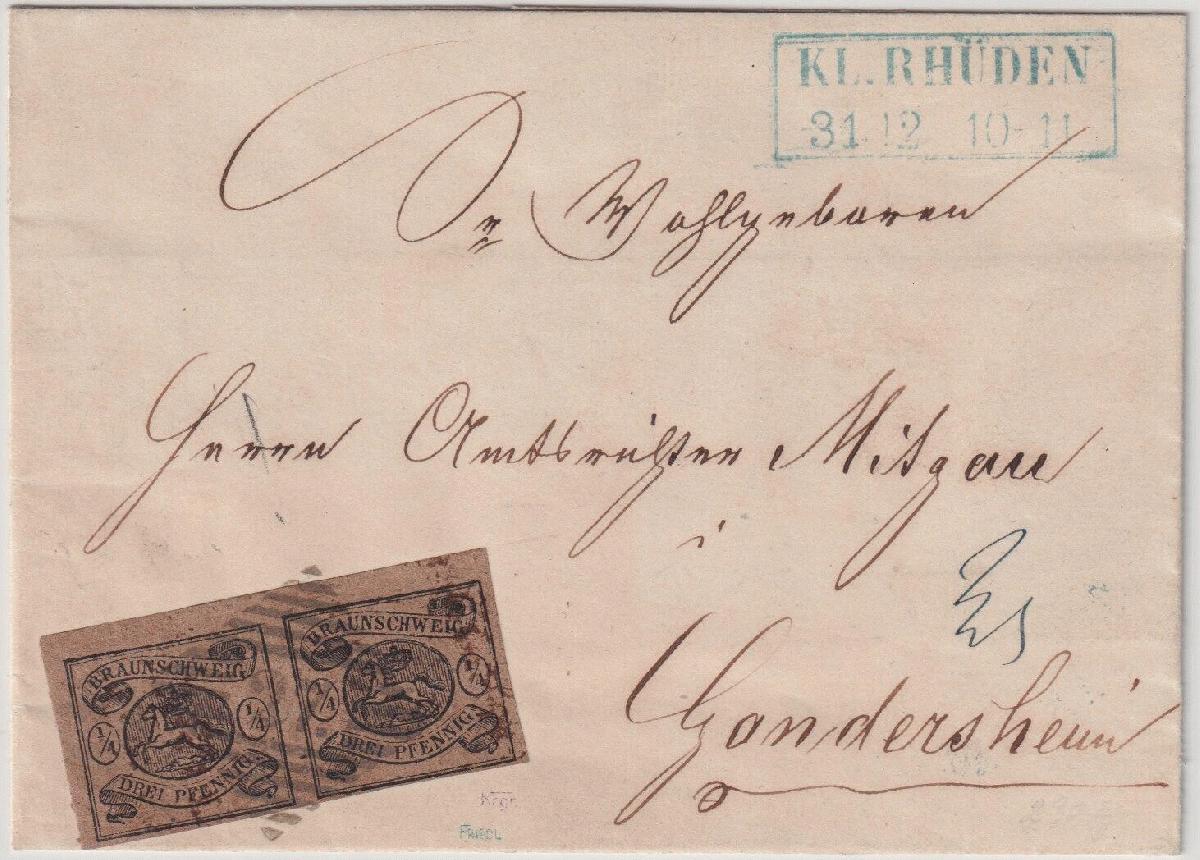 KL. RHÜDEN
31 12 10-11
Sr Wohlgeboren
Herrn Amtsrichter Mitgau
i
Gandersheim
BRAUNSCHWEIG
1/4 1/4
DREI PFENNIG
BRAUNSCHWEIG
1/4 1/4
DREI PFENNIG
FRIEDL